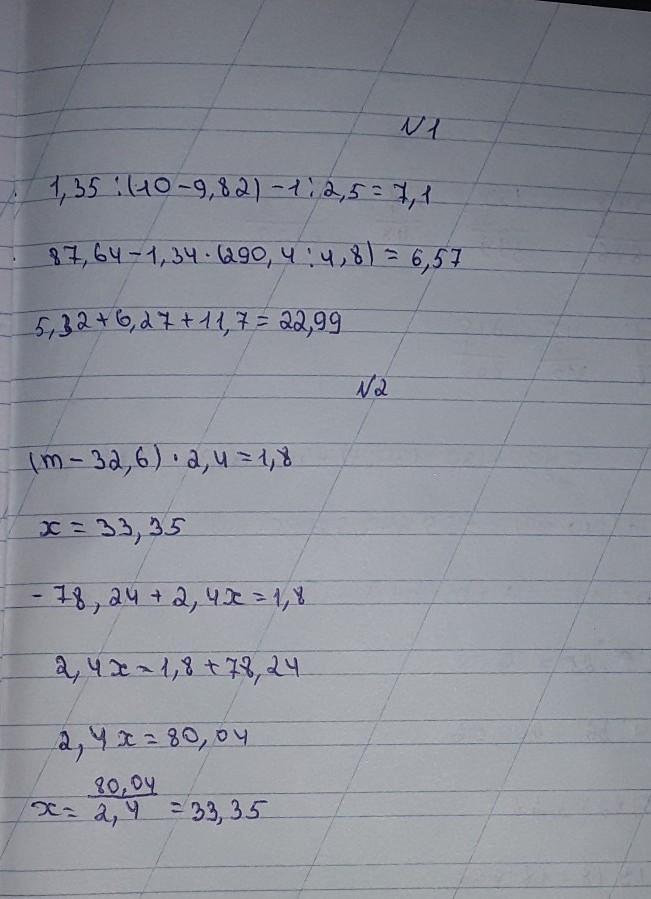 №1
1,35 : (10 - 9,82) - 1 : 2,5 = 7,1
87,64 - 1,34 · (290,4 : 4,8) = 6,57
5,32 + 6,27 + 11,7 = 22,99
№2
(m - 32,6) · 2,4 = 1,8
x = 33,35
- 78,24 + 2,4x = 1,8
2,4x = 1,8 + 78,24
2,4x = 80,04
x = 80,04/2,4 = 33,35